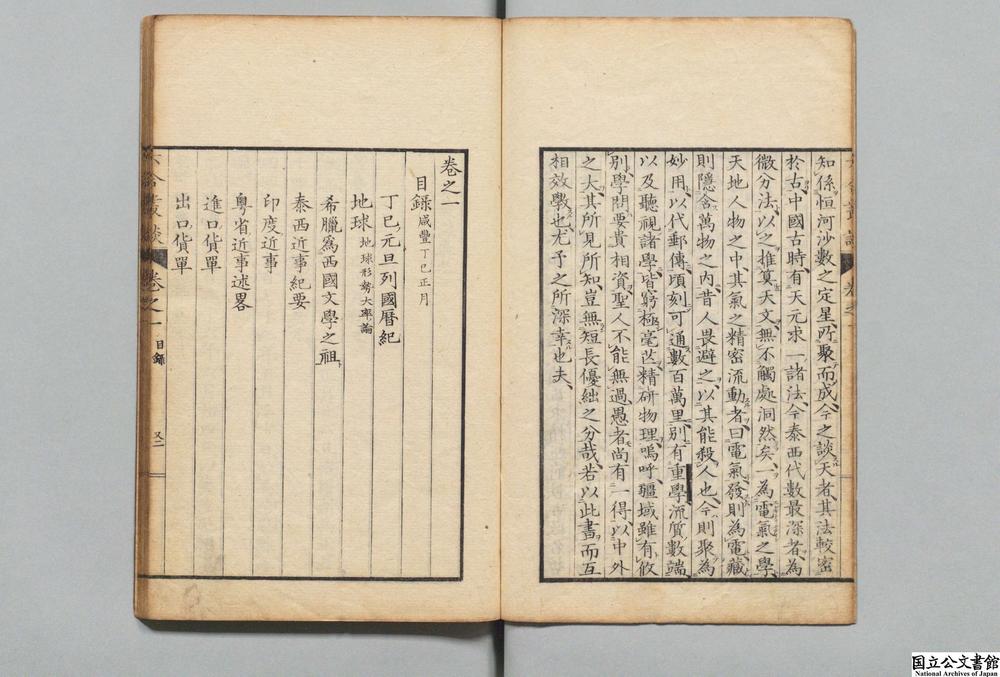 知係恒河沙數之定星所聚而成、今之談天者其法較密
於古、中國古時有天元求一諸法、今泰西代數最深者、為
微分法、以之推算天文、無不觸處洞然矣、一為電氣之學、
天地人物之中、其氣之精密流動者曰電氣、發則為電、藏
則隱含萬物之內、昔人畏避之、以其能殺人也、今則聚為
妙用、以代郵傳、頃刻可通數百萬里、別有重學流質數端、
以及聽視諸學、皆窮極毫芒、精研物理、嗚呼疆域雖有攸
別、學問要貴相資、聖人不能無過、愚者尚有一得、以中外
之大、其所見所知、豈無短長優絀之分哉、若以此書而互
相效斆也、尤予之所深幸也夫、
卷之一
目錄 咸豐丁巳正月
丁巳元旦列國曆紀
地球 地球形勢大率論
希臘為西國文學之祖
泰西近事紀要
印度近事
粵省近事述畧
進口貨單
出口貨單
六合叢談 卷之一 目錄 又二